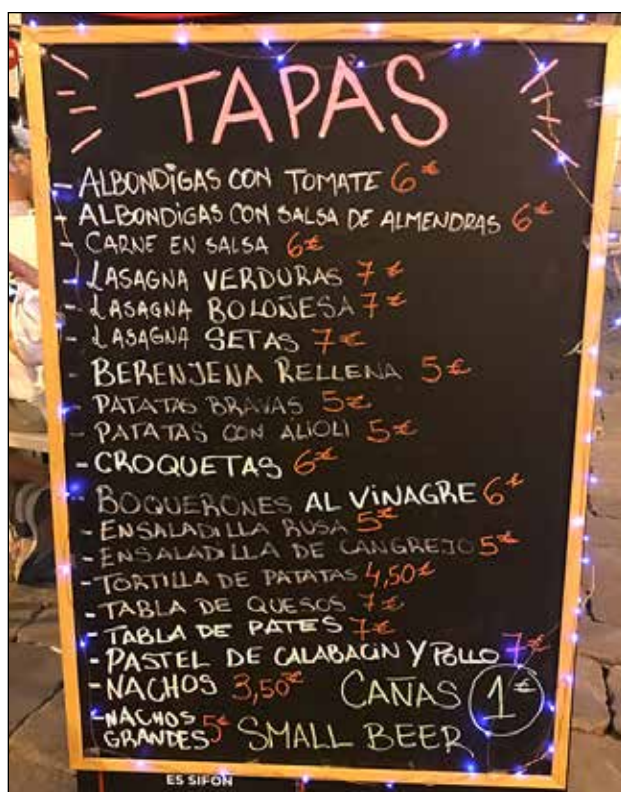 TAPAS
- ALBONDIGAS CON TOMATE 6€
- ALBONDIGAS CON SALSA DE ALMENDRAS 6€
- CARNE EN SALSA 6€
- LASAGNA VERDURAS 7€
- LASAGNA BOLOÑESA 7€
- LASAGNA SETAS 7€
- BERENJENA RELLENA 5€
- PATATAS BRAVAS 5€
- PATATAS CON ALIOLI 5€
- CROQUETAS 6€
- BOQUERONES AL VINAGRE 6€
- ENSALADILLA RUSA 5€
- ENSALADILLA DE CANGREJO 5€
- TORTILLA DE PATATAS 4,50€
- TABLA DE QUESOS 7€
- TABLA DE PATES 7€
- PASTEL DE CALABACIN Y POLLO 7€
- NACHOS 3,50€
- NACHOS
GRANDES 5€
CAÑAS 1€
SMALL BEER
ES SIFON